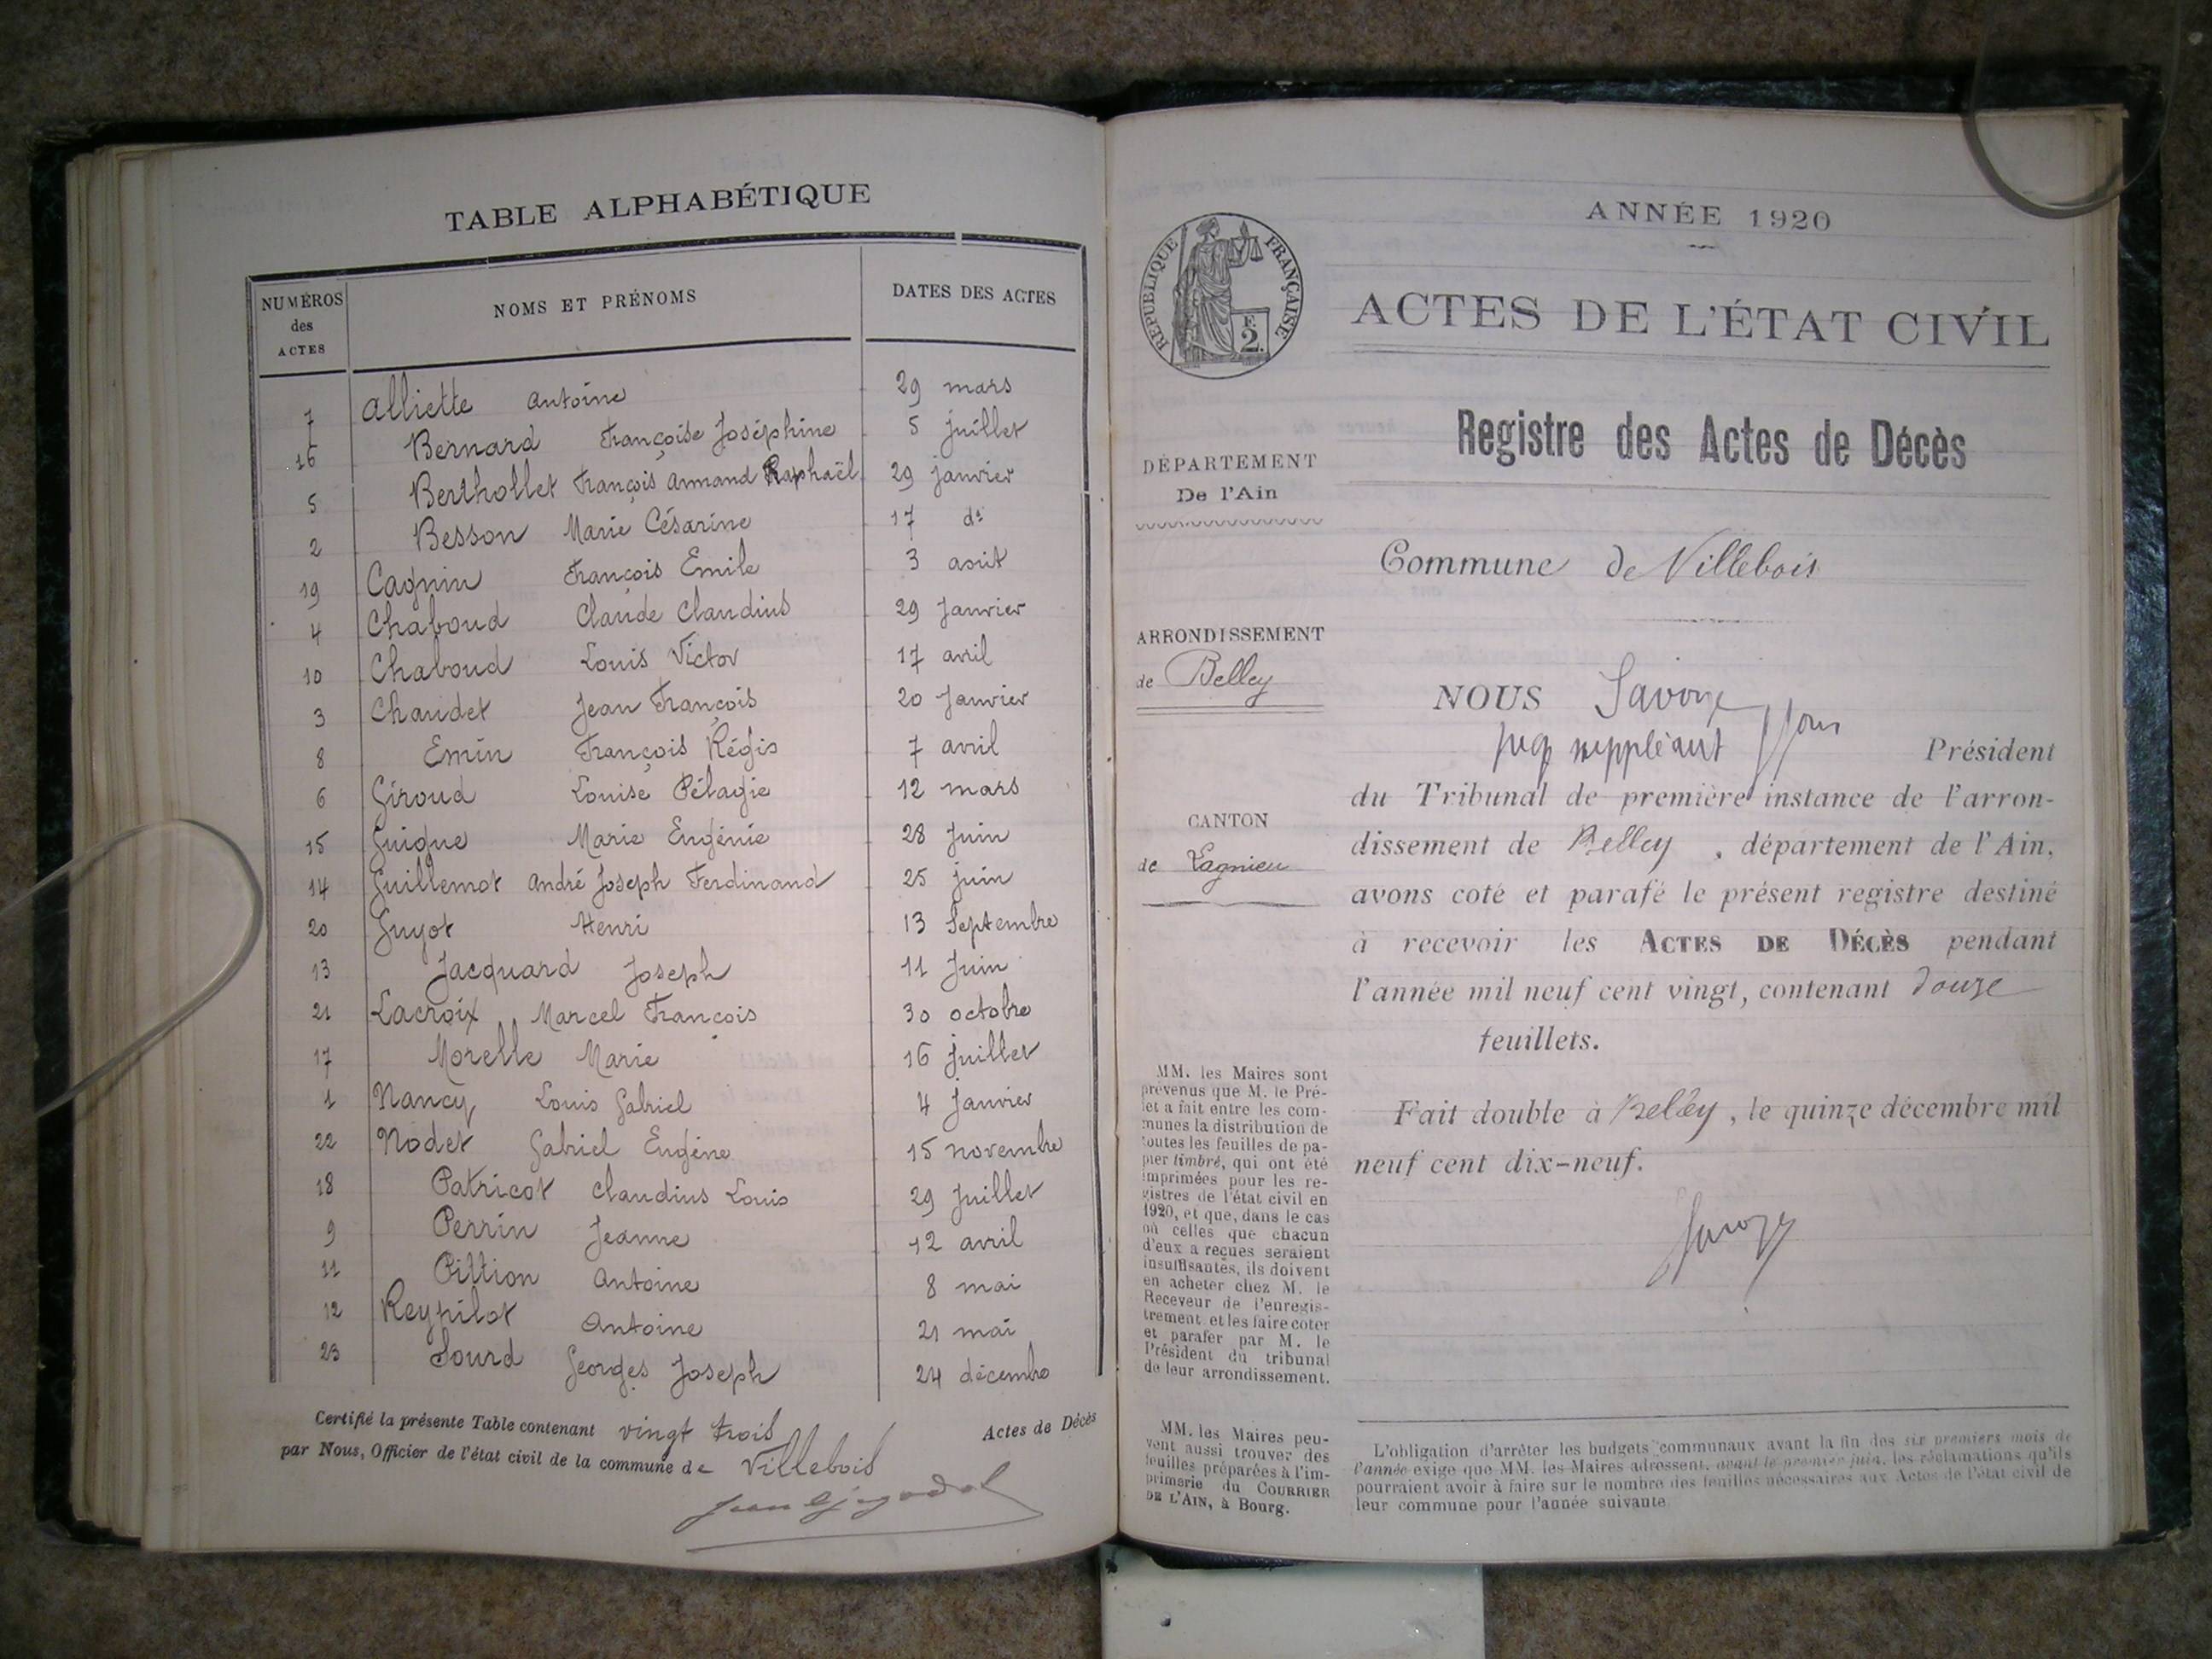 TABLE ALPHABÉTIQUE
NUMÉROS des ACTES NOMS ET PRÉNOMS DATES DES ACTES
7 Alliette Antoine 29 mars
16 Bernard Françoise Joséphine 5 juillet
5 Berthollet François Armand Raphaël 29 janvier
2 Besson Marie Césarine 17 do
19 Cagnin François Emile 3 août
4 Chaboud Claude Claudius 29 Janvier
10 Chaboud Louis Victor 17 avril
3 Chaudet Jean François 20 Janvier
8 Emin François Régis 7 avril
6 Giroud Louise Pélagie 12 mars
15 Guigue Marie Eugénie 28 Juin
14 Guillemot André Joseph Ferdinand 25 juin
20 Guyot Henri 13 Septembre
13 Jacquard Joseph 11 Juin
21 Lacroix Marcel François 30 octobre
17 Morelle Marie 16 juillet
1 Nancy Louis Gabriel 4 Janvier
22 Nodet Gabriel Eugène 15 novembre
18 Patricot Claudius Louis 29 Juillet
9 Perrin Jeanne 12 avril
11 Pittion Antoine 8 mai
12 Reypilot Antoine 21 mai
23 Sourd Georges Joseph 24 décembre
Certifié la présente Table contenant vingt trois Actes de Décès
par Nous, Officier de l'état civil de la commune de Villebois
ANNÉE 1920
RÉPUBLIQUE FRANÇAISE
F. 2.
ACTES DE L'ÉTAT CIVIL
Registre des Actes de Décès
DÉPARTEMENT
De l'Ain
Commune de Villebois
ARRONDISSEMENT
de Belley
CANTON
de Lagnieu
NOUS Savoye
juge suppléant Président
du Tribunal de première instance de l'arron-
dissement de Belley, département de l'Ain,
avons coté et parafé le présent registre destiné
à recevoir les ACTES DE DÉCÈS pendant
l'année mil neuf cent vingt, contenant douze
feuillets.
Fait double à Belley, le quinze décembre mil
neuf cent dix-neuf.
Savoye
MM. les Maires sont
prévenus que M. le Pré-
fet a fait entre les com-
munes la distribution de
toutes les feuilles de pa-
pier timbré, qui ont été
imprimées pour les re-
gistres de l'état civil en
1920, et que, dans le cas
où celles que chacun
d'eux a reçues seraient
insuffisantes, ils doivent
en acheter chez M. le
Receveur de l'enregis-
trement et les faire coter
et parafer par M. le
Président du tribunal
de leur arrondissement.
MM. les Maires peu-
vent aussi trouver des
feuilles préparées à l'im-
primerie du COURRIER
DE L'AIN, à Bourg.
L'obligation d'arrêter les budgets communaux avant la fin des six premiers mois de
l'année exige que MM. les Maires adressent, avant le premier juin, les réclamations qu'ils
pourraient avoir à faire sur le nombre des feuilles nécessaires aux Actes de l'état civil de
leur commune pour l'année suivante